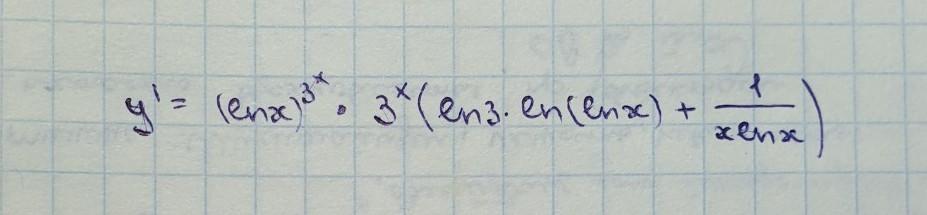 y' = (ln x)^{3^x} · 3^x (ln 3 · ln(ln x) + \frac{1}{x ln x})